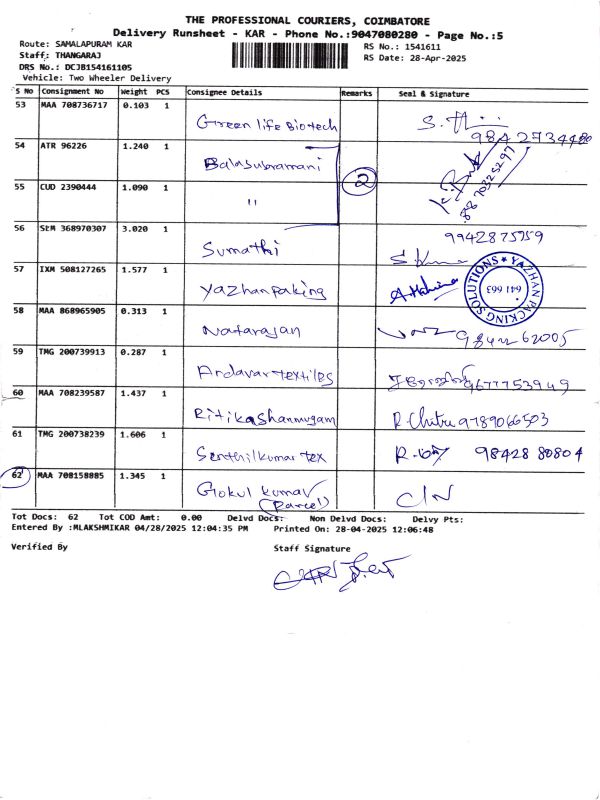 THE PROFESSIONAL COURIERS, COIMBATORE
Delivery Runsheet - KAR - Phone No.:9047080280 - Page No.:5
Route: SAMALAPURAM KAR
RS No.: 1541611
Staff: THANGARAJ
RS Date: 28-Apr-2025
DRS No.: DCJB154161105
Vehicle: Two Wheeler Delivery
S No Consignment No Weight PCS Consignee Details Remarks Seal & Signature
53 MAA 708736717 0.103 1 Green life Biotech
54 ATR 96226 1.240 1 Balasubramani 2
55 CUD 2390444 1.090 1 "
56 SEM 368970307 3.020 1 Sumathi 9942875959
57 IXM 508127265 1.577 1 Yazhanpaking
YAZHAN PACKING SOLUTIONS ★ 641 663
58 MAA 868965905 0.313 1 Natarajan
59 TMG 200739913 0.287 1 Andavar textiles 9677753949
60 MAA 708239587 1.437 1 Ritikashanmugam R.Chitra 9789066503
61 TMG 200738239 1.606 1 Senthilkumar tex 98428 80804
62 MAA 708158885 1.345 1 Gokul kumar (Parcel)
Tot Docs: 62 Tot COD Amt: 0.00 Delvd Docs: Non Delvd Docs: Delvy Pts:
Entered By :MLAKSHMIKAR 04/28/2025 12:04:35 PM Printed On: 28-04-2025 12:06:48
Verified By
Staff Signature